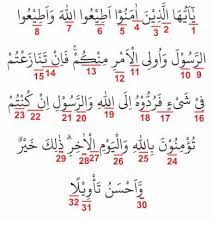 يٰٓاَيُّهَا الَّذِيْنَ اٰمَنُوْٓا اَطِيْعُوا اللّٰهَ وَاَطِيْعُوا
8 7 6 5 4 3 2 1
الرَّسُوْلَ وَاُولِى الْاَمْرِ مِنْكُمْۚ فَاِنْ تَنَازَعْتُمْ
15 14 13 12 11 10 9
فِيْ شَيْءٍ فَرُدُّوْهُ اِلَى اللّٰهِ وَالرَّسُوْلِ اِنْ كُنْتُمْ
23 22 21 20 19 18 17 16
تُؤْمِنُوْنَ بِاللّٰهِ وَالْيَوْمِ الْاٰخِرِۗ ذٰلِكَ خَيْرٌ
29 28 27 26 25 24
وَّاَحْسَنُ تَأْوِيْلًا
32 31 30